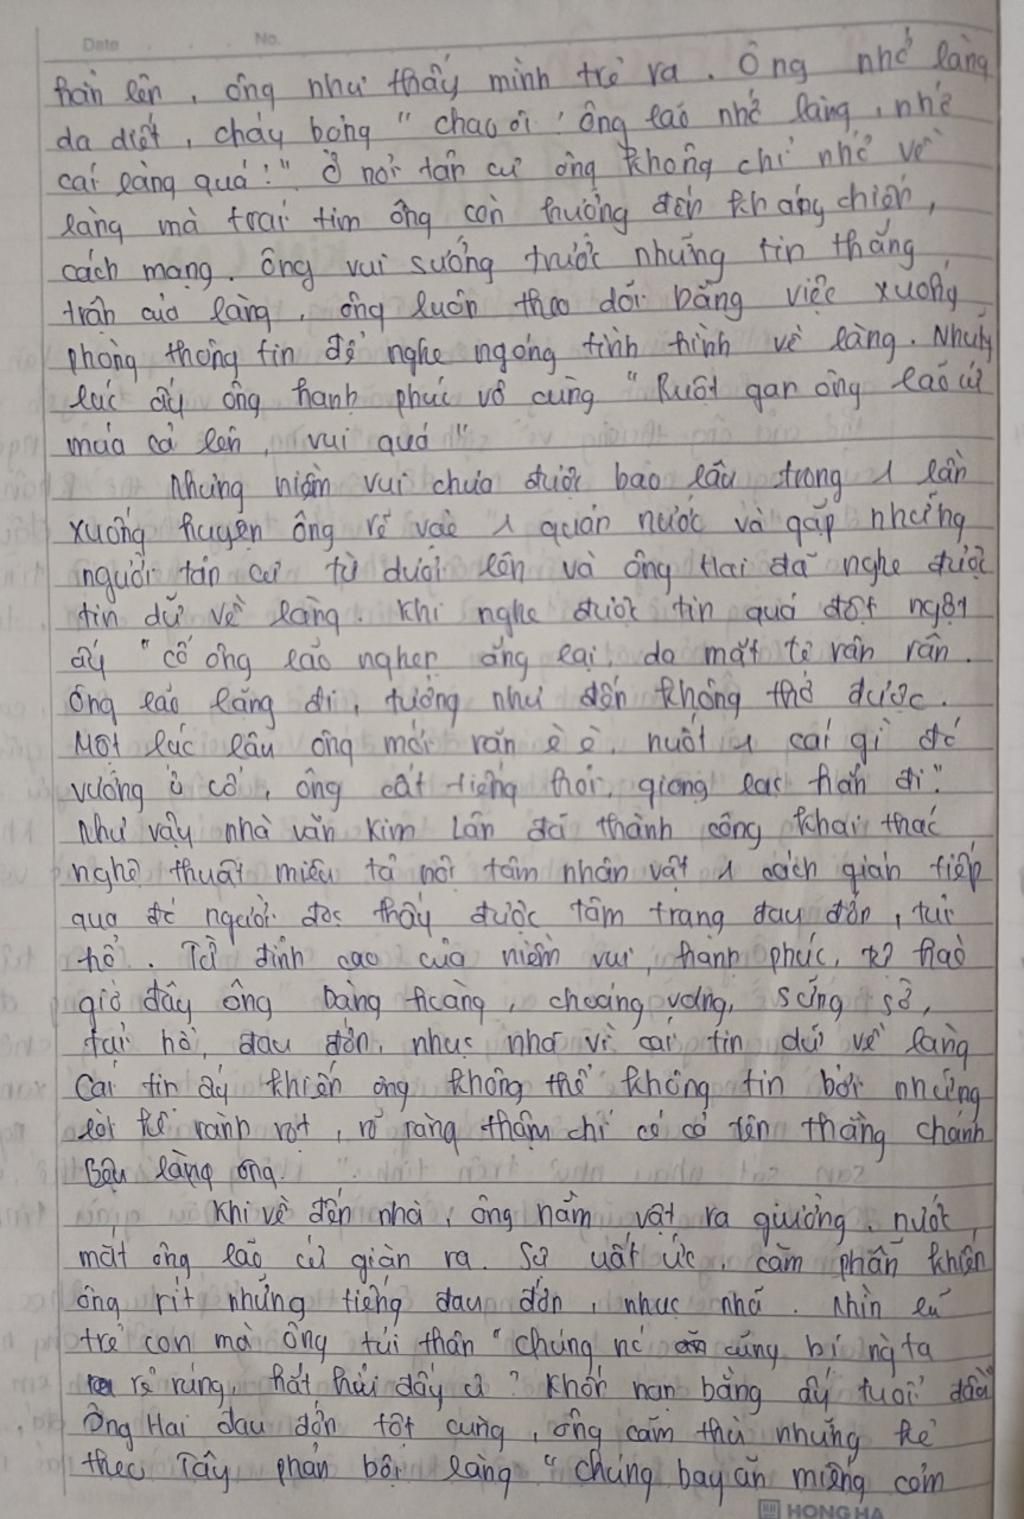 Date No.
hẳn lên, ông như thấy mình trẻ ra. Ông nhớ làng
da diết, cháy bỏng "chao ôi! Ông lão nhớ làng, nhớ
cái làng quá!" Ở nơi tản cư ông không chỉ nhớ về
làng mà trái tim ông còn hướng đến kháng chiến,
cách mạng. Ông vui sướng trước những tin thắng
trận của làng, ông luôn theo dõi bằng việc xuống
phòng thông tin để nghe ngóng tình hình về làng. Những
lúc ấy ông hạnh phúc vô cùng "Ruột gan ông lão cứ
múa cả lên, vui quá"
Nhưng niềm vui chưa được bao lâu trong 1 lần
xuống huyện ông rẽ vào 1 quán nước và gặp những
người tản cư từ dưới lên và ông Hai đã nghe được
tin dữ về làng. Khi nghe được tin quá đột ngột
ấy "cổ ông lão nghẹn ắng lại, da mặt tê rân rân.
Ông lão lặng đi, tưởng như đến không thở được.
Một lúc lâu ông mới rặn è è, nuốt 1 cái gì đó
vướng ở cổ, ông cất tiếng hỏi, giọng lạc hẳn đi".
Như vậy nhà văn Kim Lân đã thành công khai thác
nghệ thuật miêu tả nội tâm nhân vật 1 cách gián tiếp
qua đó người đọc thấy được tâm trạng đau đớn, tủi
hổ. Từ đỉnh cao của niềm vui, hạnh phúc, tự hào
giờ đây ông bàng hoàng, choáng váng, sững sờ,
tủi hổ, đau đớn, nhục nhã vì cái tin dữ về làng
Cái tin ấy khiến ông không thể không tin bởi những
lời kể rành rọt, rõ ràng thậm chí có cả tên thằng chánh
Bệu làng ông.
Khi về đến nhà, ông nằm vật ra giường, nước
mắt ông lão cứ giàn ra. Sự uất ức, căm phẫn khiến
ông rít những tiếng đau đớn, nhục nhã. Nhìn lũ
trẻ con mà ông tủi thân "chúng nó cũng bị ng ta
rẻ rúng, hắt hủi đấy ư? Khốn nạn bằng ấy tuổi đầu
Ông Hai đau đớn tột cùng, ông căm thù những kẻ
theo Tây phản bội làng "chúng bay ăn miếng cơm
HONG HA